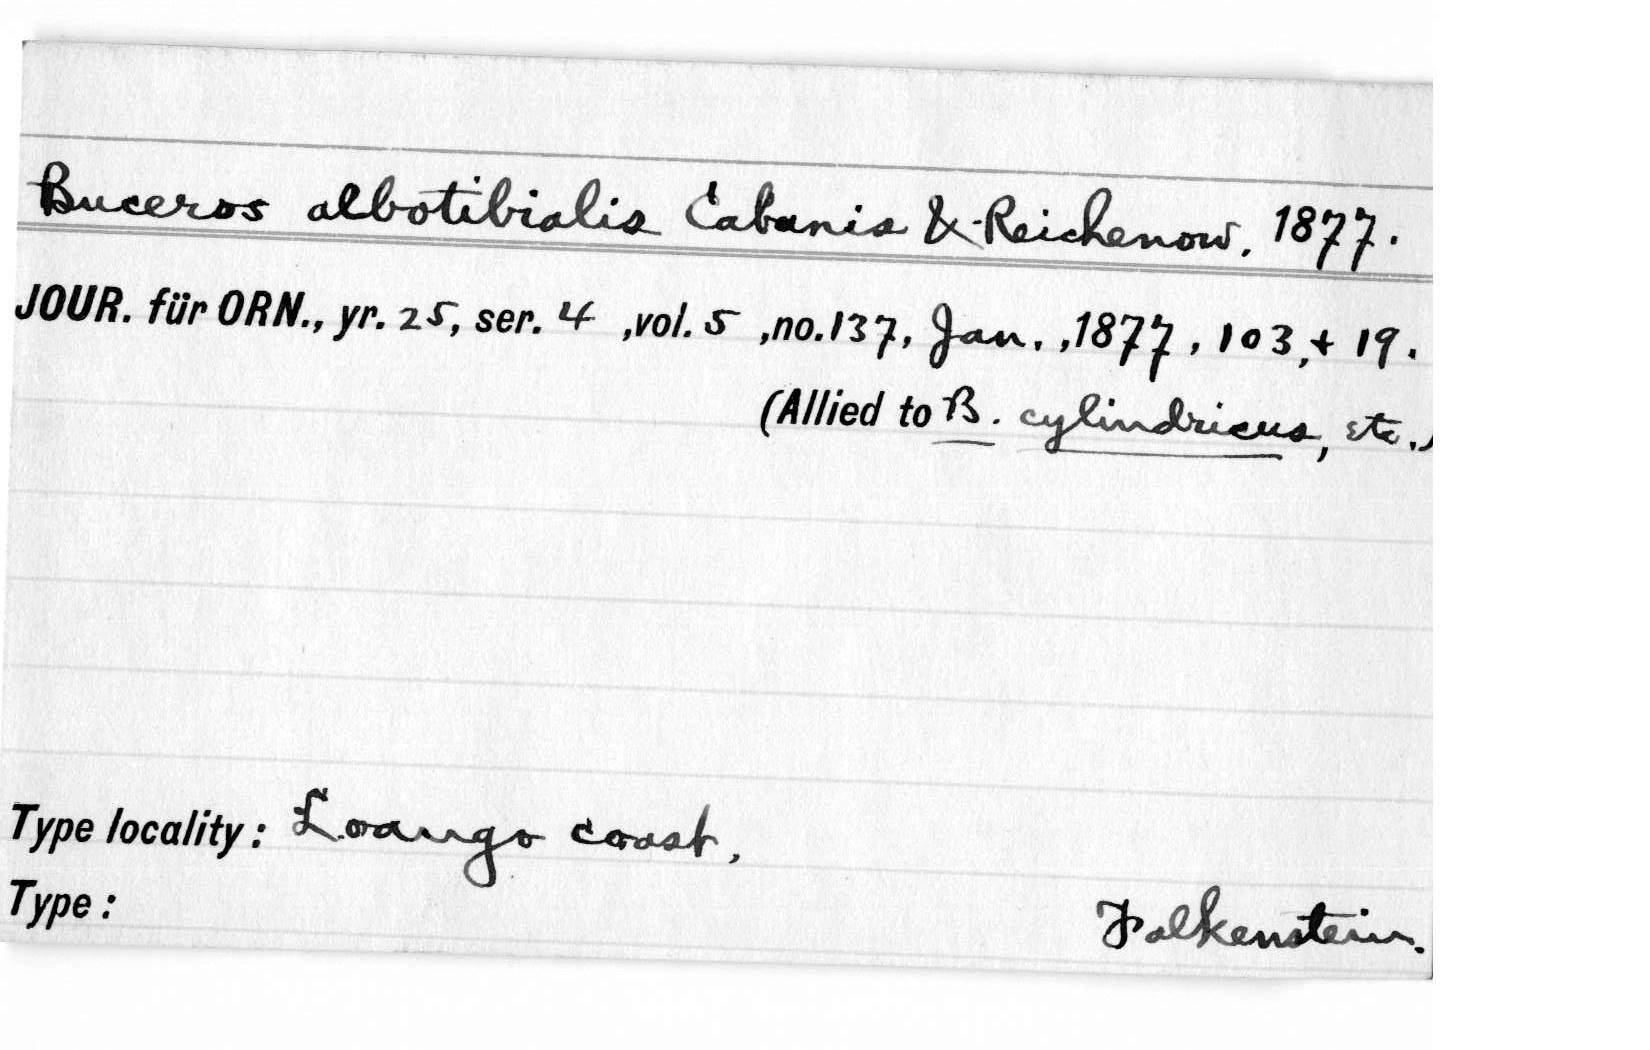 Buceros albotibialis Cabanis & Reichenow, 1877.
JOUR. für ORN., yr. 25, ser. 4 ,vol. 5 ,no. 137, Jan. ,1877, 103, + 19.
(Allied to B. cylindricus, etc.)
Type locality: Loango coast,
Type: Falkenstein.